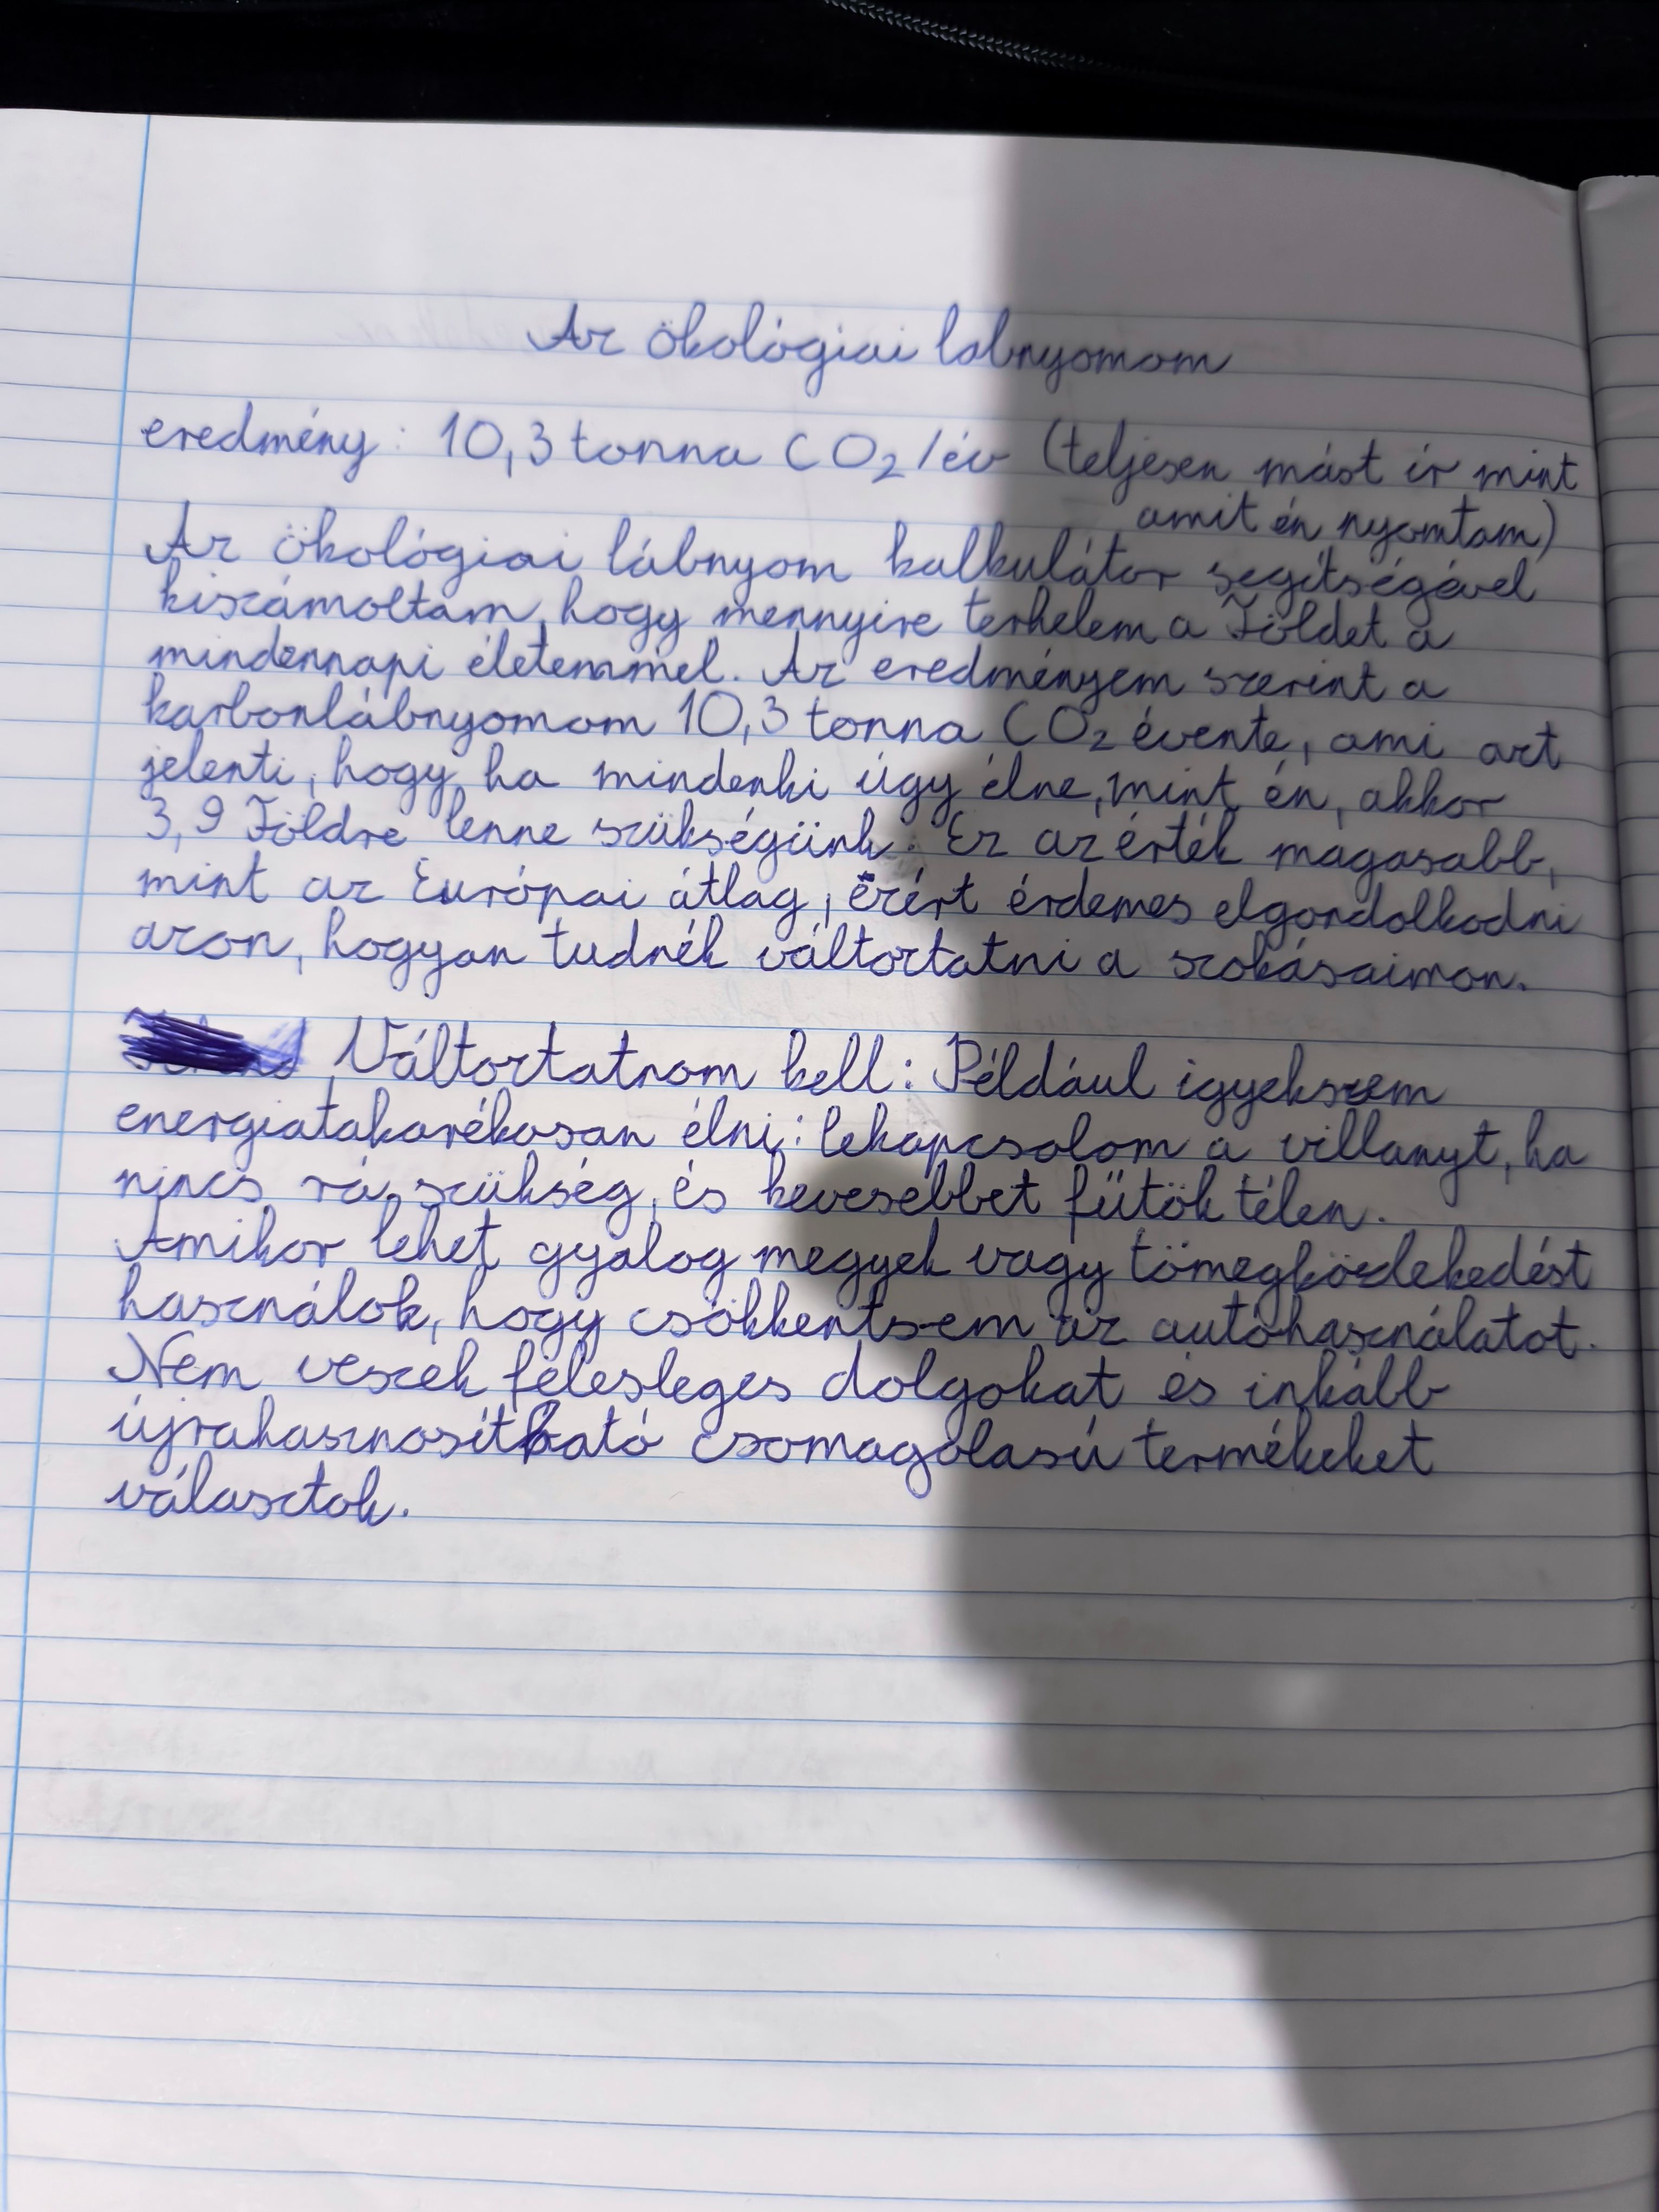 Az ökológiai lábnyomom
eredmény: 10,3 tonna CO₂/év (teljesen mást ír mint
amit én nyomtam)
Az ökológiai lábnyom kalkulátor segítségével
kiszámoltam, hogy mennyire terhelem a Földet a
mindennapi életemmel. Az eredményem szerint a
karbonlábnyomom 10,3 tonna CO₂ évente, ami azt
jelenti, hogy ha mindenki úgy élne, mint én, akkor
3,9 Földre lenne szükségünk. Ez az érték magasabb,
mint az Európai átlag, ezért érdemes elgondolkodni
azon, hogyan tudnék változtatni a szokásaimon.
Változtatnom kell: Például igyekszem
energiatakarékosan élni: lekapcsolom a villanyt, ha
nincs rá szükség, és kevesebbet fűtök télen.
Amikor lehet gyalog megyek vagy tömegközlekedést
használok, hogy csökkentsem az autóhasználatot.
Nem veszek felesleges dolgokat és inkább
újrahasznosítható csomagolású termékeket
választok.